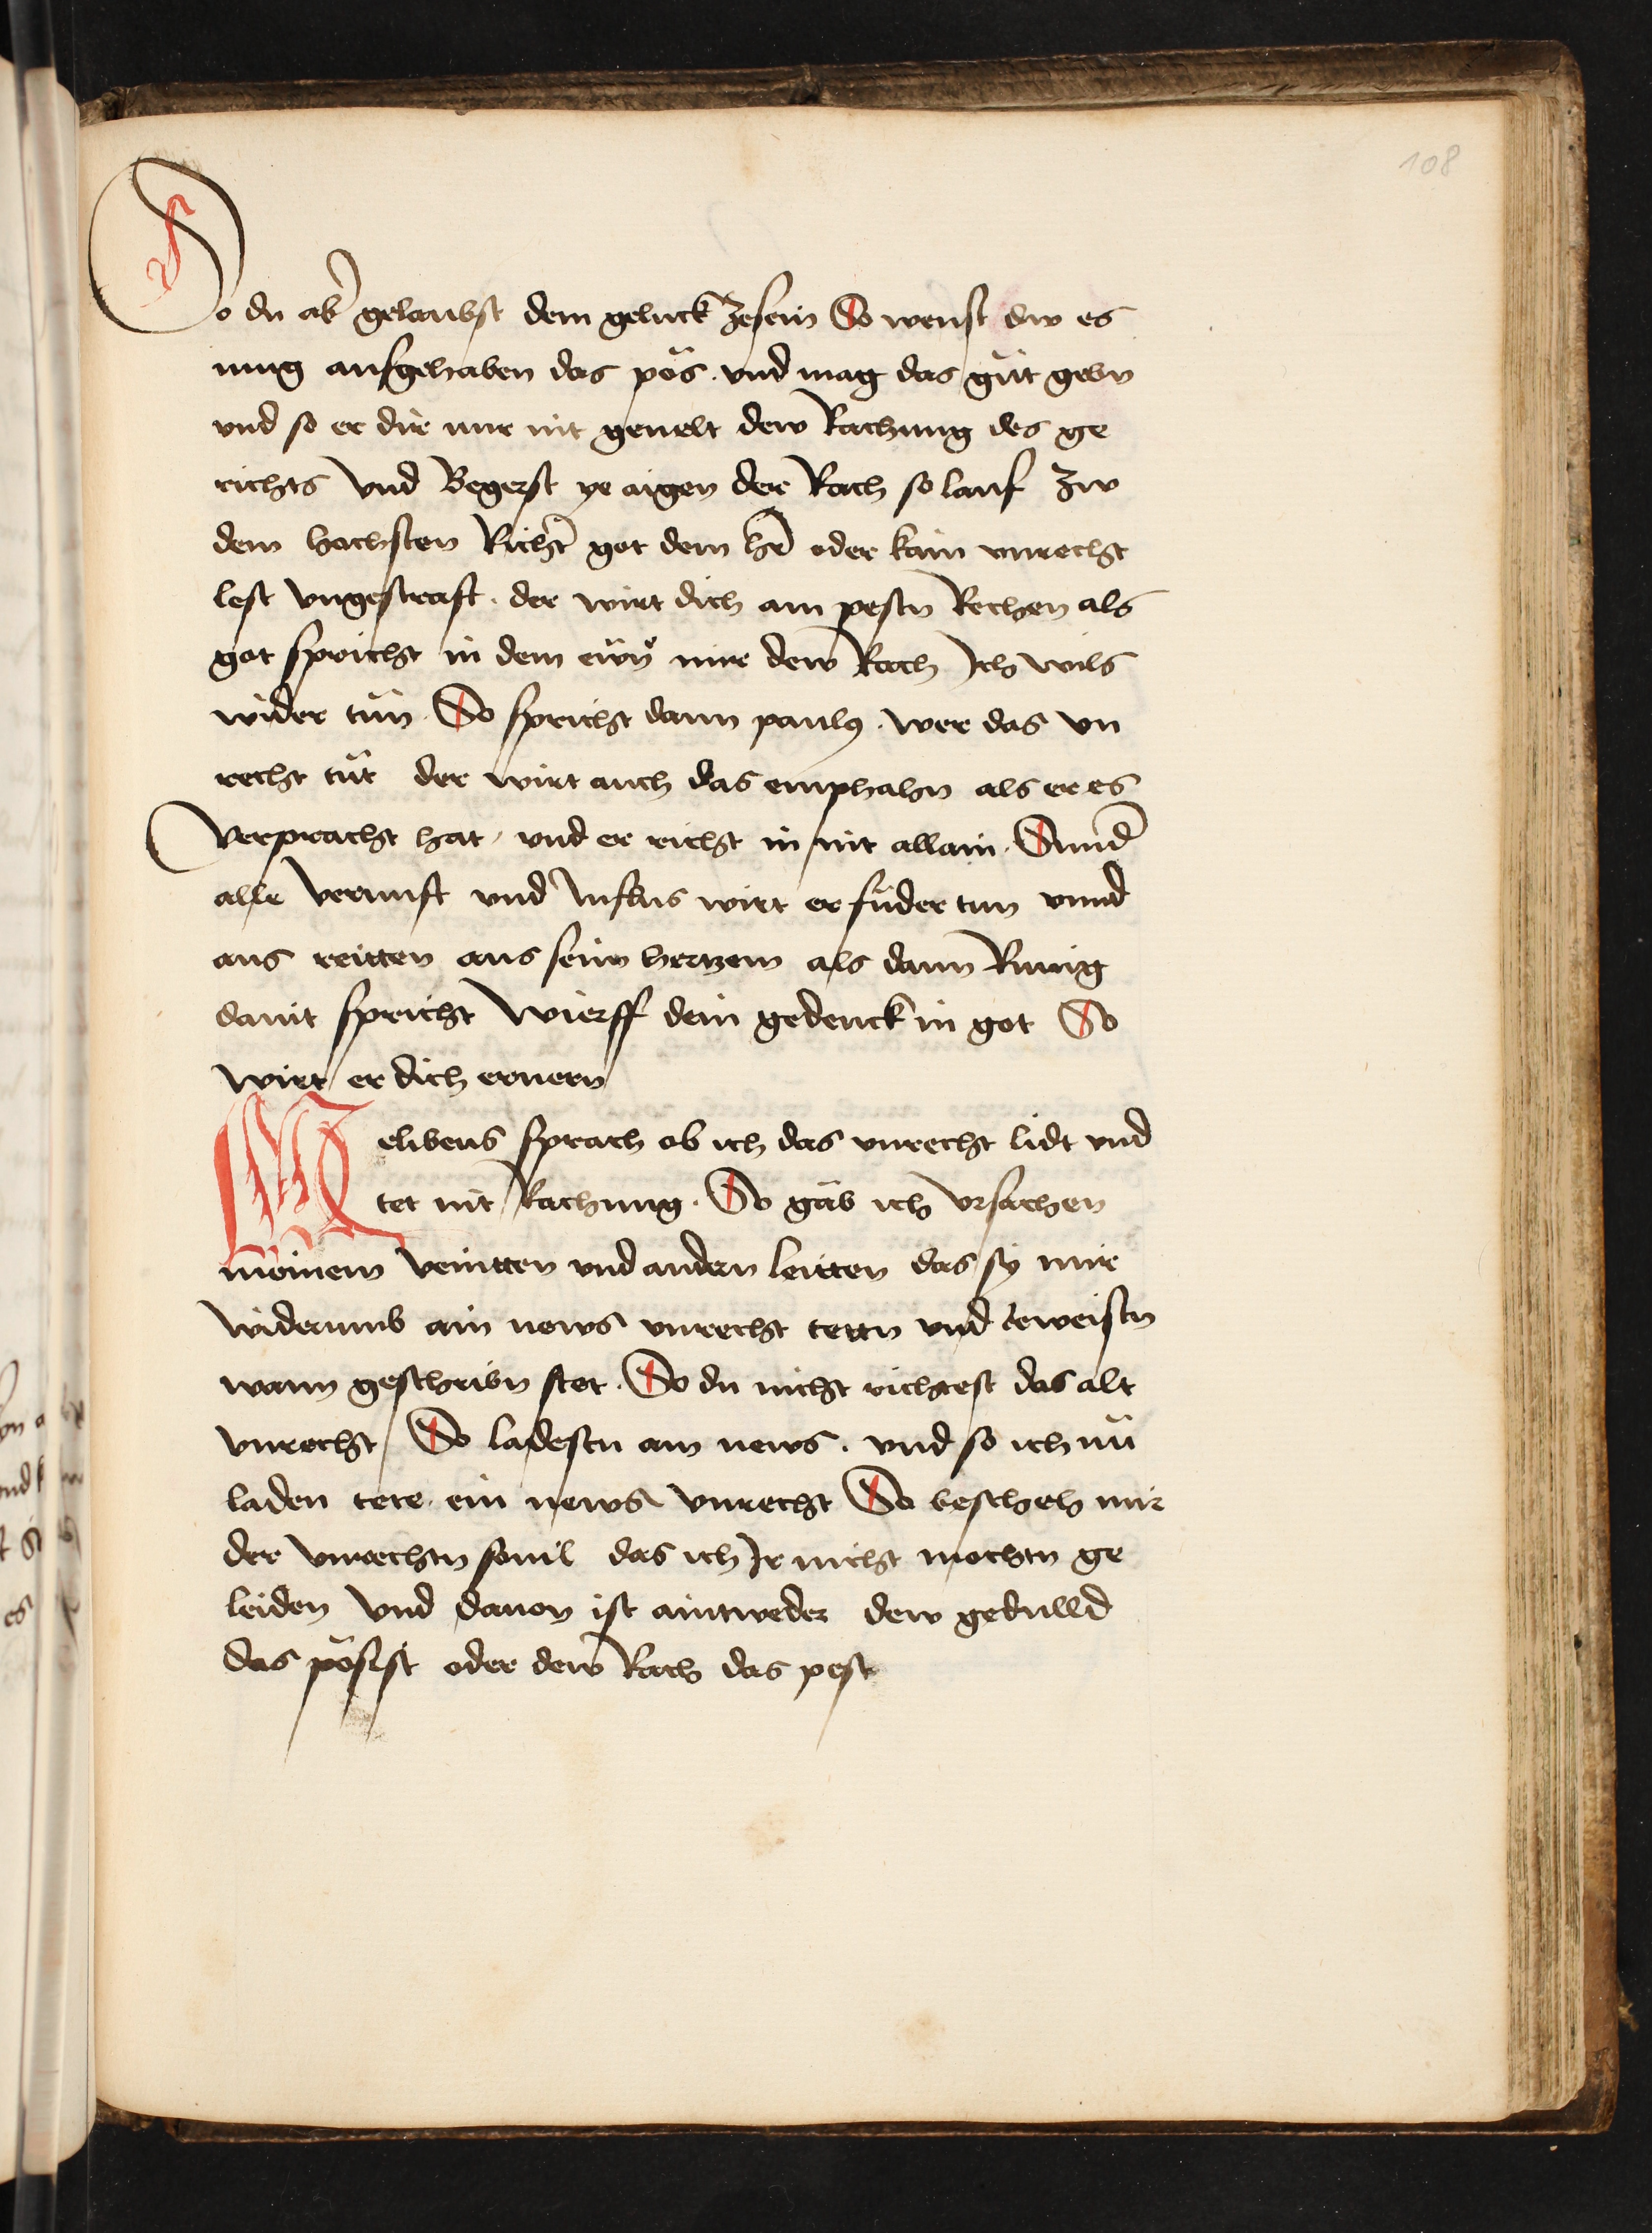 108
So du ab̄ gelaubst dem geluck zesein So wenst dw es
mug aufgehaben das pös. vnd mag das güt gebn
vnd so er dir nur nit geuelt dew Rachung des ge
richts Vnd Begerst ye aigen der Rach so lauf zw
dem hochsten Richt̄ got dem h̄r oder kain vnrecht
lest vngestraft. der wirt dich am pestn Rechen als
got spricht in dem ewn̄ mir dew Rach Ich wils
wider tün. So spricht dann paulꝰ. wer das vn
recht tüt der wirt auch das emphahn als er es
verpracht hat, vnd er richt in nit allain. Sund̄
alle vernuft vnd wirt er füder tun vnnd
aus reitten aus seim hertzen als dann kunig
dauit spricht Wierff dein gedenck in got So
wirt er dich ernern
Melibeus sprach ob ich das vnrecht lidt vnd
tet nit Rachung. So gäb ich vrsachen
meinem veintten vnd andern leitten das sy mir
widerumb ain news vnrecht tettn vnd beweistn
wann geschribn stet. So du nicht richtest das alt
vnrecht So ladestu am news. vnd so ich nü
laden tete. ein news vnrecht So beschech mir
der vnrechtn souil das ich Ir nicht mochtn ge
leiden Vnd dauon ist aintweder dew gedulld
das pösist oder dew Rach das pest